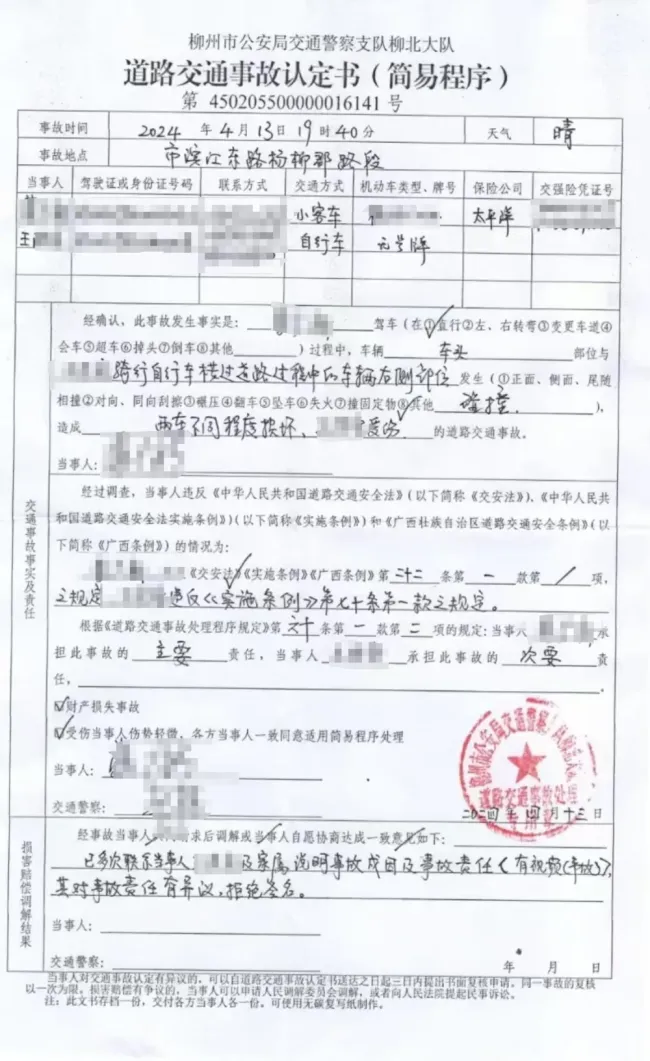 柳州市公安局交通警察支队柳北大队
道路交通事故认定书（简易程序）
第 450205500000016141 号
事故时间 2024 年 4 月 13 日 19 时 40 分 天气 晴
事故地点 市滨江东路杨柳郡路段
当事人 驾驶证或身份证号码 联系方式 交通方式 机动车类型、牌号 保险公司 交强险凭证号
小客车 太平洋
王 自行车 无号牌
交通事故事实及责任
经确认，此事故发生事实是： 驾车（在①直行②左、右转弯③变更车道④
会车⑤超车⑥掉头⑦倒车⑧其他 ）过程中，车辆 车头 部位与
骑行自行车横过道路过程中的车辆右侧部位 发生（①正面、侧面、尾随
相撞②对向、同向刮擦③碾压④翻车⑤坠车⑥失火⑦撞固定物⑧其他 碰撞 ），
造成 两车不同程度损坏、 的道路交通事故。
当事人：
经过调查，当事人违反《中华人民共和国道路交通安全法》（以下简称《交安法》）、《中华人民共
和国道路交通安全法实施条例》（以下简称《实施条例》）和《广西壮族自治区道路交通安全条例》（以
下简称《广西条例》）的情况为：
《交安法》《实施条例》《广西条例》第 二十二 条第 一 款第 / 项，
之规定 违反《实施条例》第七十条第一款之规定。
根据《道路交通事故处理程序规定》第 六十 条第 一 款第 二 项的规定：当事人 承
担此事故的 主要 责任，当事人 承担此事故的 次要 责
任，
☑财产损失事故
☑受伤当事人伤势轻微，各方当事人一致同意适用简易程序处理
当事人：
交通警察： 二〇二四年四月十三日
柳州市公安局交通警察支队柳北大队
道路交通事故处理
专用章
损害赔偿调解结果
经事故当事人 请求后调解或当事人自愿协商达成一致意见如下：
已多次联系当事人 及家属，说明事故成因及事故责任（有视频（事故）），
其对事故责任有异议，拒绝签名。
当事人：
交通警察： 年 月 日
当事人对交通事故认定有异议的，可以自道路交通事故认定书送达之日起三日内提出书面复核申请。同一事故的复核
以一次为限。损害赔偿有争议的，当事人可以申请人民调解委员会调解，或者向人民法院提起民事诉讼。
注：此文书存档一份，交付各方当事人各一份。可使用无碳复写纸制作。